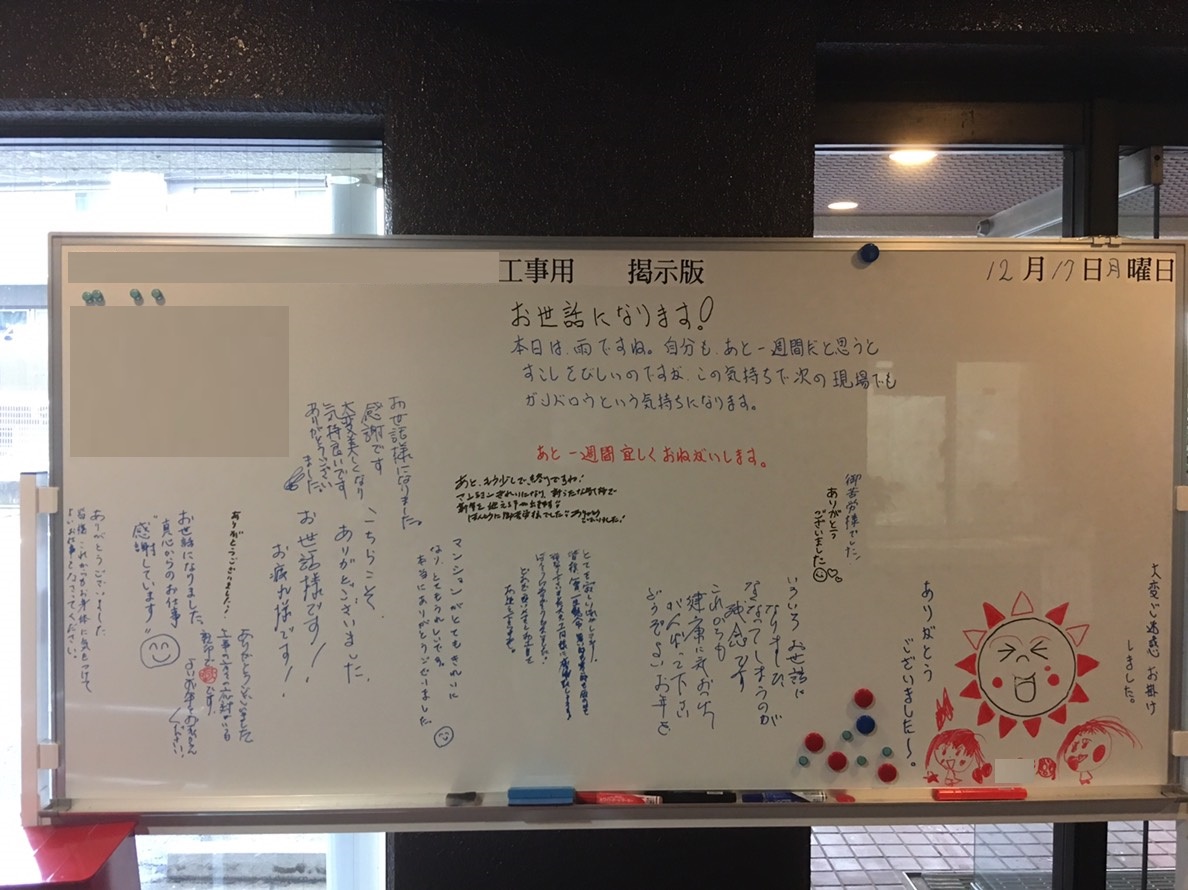 工事用 掲示版
12月17日月曜日
お世話になります!
本日は、雨ですね。自分も、あと一週間だと思うと
すこしさびしいのですが、この気持ちで次の現場でも
ガンバロウという気持ちになります。
あと一週間宜しくおねがいします。
大変ご迷惑お掛け
しました。
ありがとう
ございました〜。
御苦労様でした。
ありがとう
ございました
いろいろお世話に
なりました
なくなってしまうのが
残念です
これからも
健康に気をつけ
がんばって下さい
どうぞよいお年を
あと、もう少しで終りですね!
マンションがとてもきれいに
なり、とてもうれしいです。
本当にありがとうございました
お世話様になりました。
感謝です
大変美しくなり
気持良いです
ありがとうござい
ました
こちらこそ、
ありがとございました。
お世話様です!
お疲れ様です!
ありがとうございました♪
ありがとうございました
お世話になりました。
真心からのお仕事
"感謝しています"
ありがとうございました
皆様これからもお身体に気をつけて
よいお仕事をなさってください。